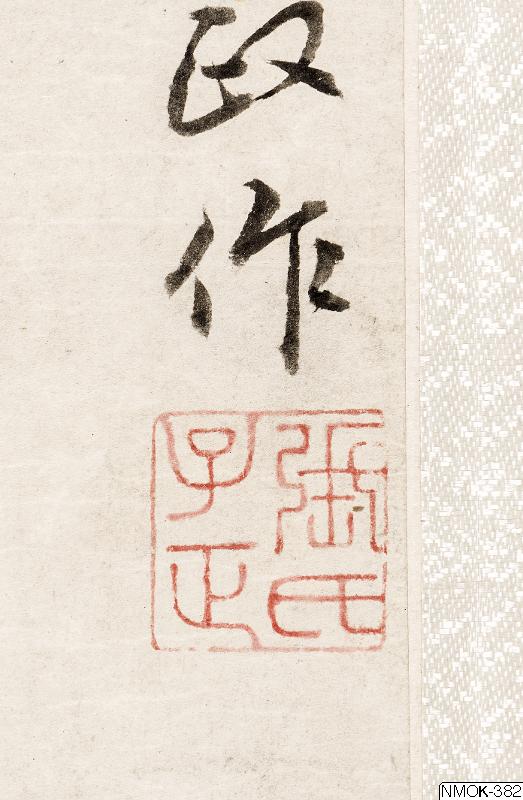 政作
張氏
子正
NMOK-382